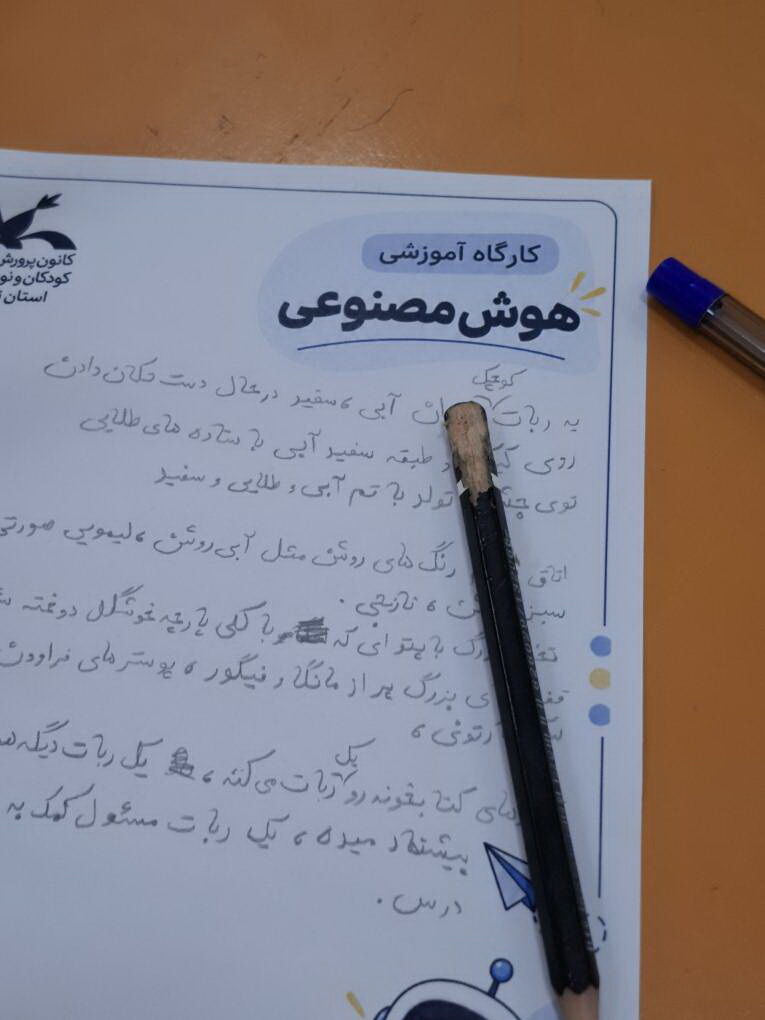 کانون پرورش
کودکان و نو
استان
کارگاه آموزشی
هوش مصنوعی
کوچک
یه ربات آبی ، سفید در حال دست تکان دادن
روی طبقه سفید آبی با ستاره های طلایی
توی تولد با تم آبی و طلایی و سفید
اتاق رنگ های روشن مثل آبی روشن ، لیمویی صورتی
سبز ، نارنجی .
با پتو ای که با کلی پارچه خوشگل دوخته
های بزرگ پر از مانگا و فیگور ، پوستر های فراوون
یک
کتا بخونه رو ربات می کنه ، یک ربات دیگه
پیشنهاد میده ، یک ربات مسئول کمک به
درس .